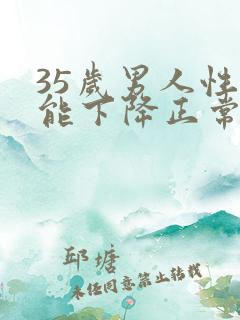 35岁男人性
能下降正常
邱塘
未经同意禁止转载